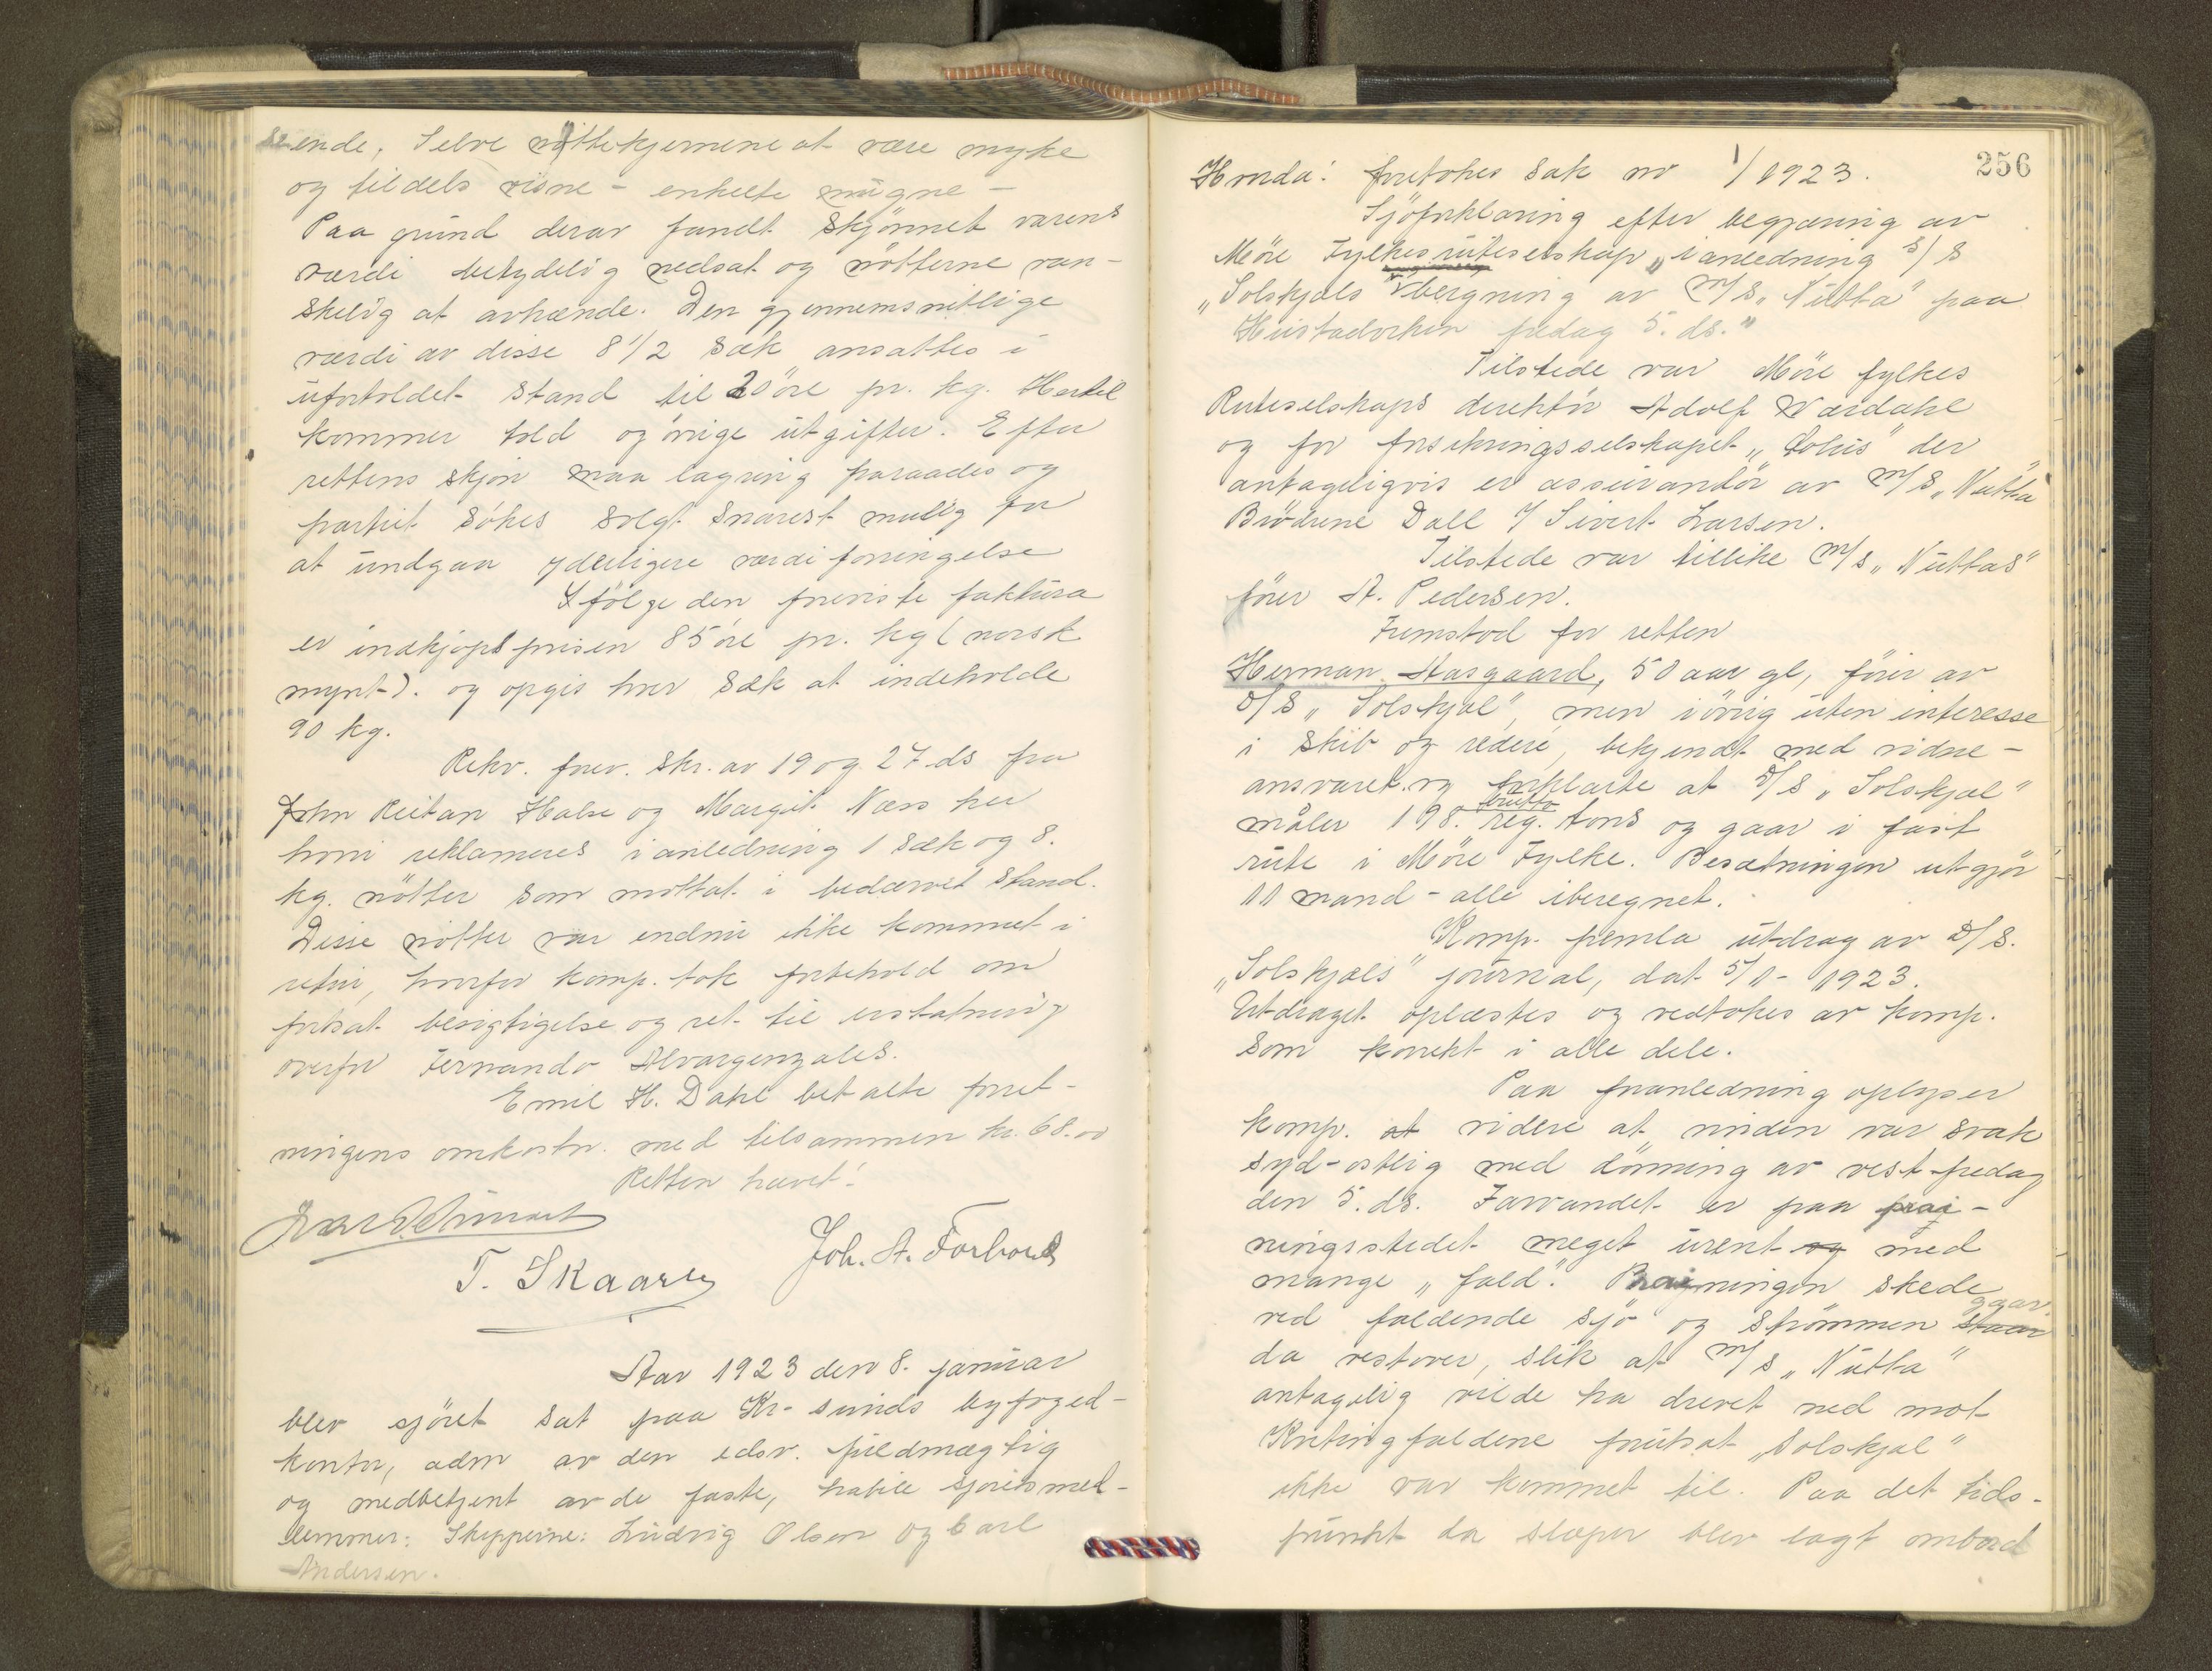 seende, Selve nøttekjernene at være myke
og tildels visne - enkelte mugne -
Paa grund derav fandt skjønnet varens
værdi betydelig nedsat og nøtterne van-
skelig at avhænde. Den gjennemsnitlige
værdi av disse 8 1/2 sæk ansattes i
ufortoldet stand til 20 øre pr. kg. Hertil
kommer told og øvrige utgifter. Efter
rettens skjøn maa lagring fraraades og
partiet søkes solgt snarest mulig for
at undgaa yderligere værdiforringelse
Ifølge den foreviste faktura
er indkjøpsprisen 85 øre pr. kg (norsk
mynt). og opgis hver sæk at indeholde
90 kg.
Rekv. frev. skr. av 19 og 27 ds fra
John Reitan Halse og Margit Næss her
hvori reklameres i anledning 1 sæk og 8.
kg. nøtter som mottat i bedærvet stand.
Disse nøtter var endnu ikke kommet i
retur, hvorfor komp. tok forbehold om
fortsat besigtigelse og ret til erstatning
overfor Fernando Alvargonzales.
Emil H. Dahl betalte forret-
ningens omkostn. med tilsammen kr. 68.00
Retten hævet!
T. Skaar
Joh. A. Forbord
Aar 1923 den 8. januar
blev sjøret sat paa Kr-sunds byfoged-
kontor, adm av den edsv. fuldmægtig
og medbetjent av de faste, habile sjøretsmed-
lemmer: Skipperne: Ludvig Olsen og Carl
Andersen.
256
Hvorda: foretokes sak no 1/1923.
Sjöforklaring efter begjæring av
Møre Fylkes ruteselskap „i anledning s/s
„Solskjæls bergning av m/s „Nutta" paa
Hustadviken fredag 5. ds."
Tilstede var Møre fylkes
Ruteselskaps direktør Adolf Værdahl
og for forsikringsselskapet „Æolus" der
antageligvis er assurandør av m/s „Nutta"
Brødrene Dall v/ Sivert Larsen.
Tilstede var tillike m/s „Nuttas"
fører A. Pedersen.
Fremstod for retten
Herman Aasgaard, 50 aar gl, fører av
D/S „Solskjæl", men iøvrig uten interesse
i skib og rederi, bekjendt med vidne-
ansvaret og forklarte at D/S „Solskjæl"
måler 198. brutto reg. tons og gaar i fast
rute i Møre Fylke. Besætningen utgjør
11 mand - alle iberegnet.
Komp. fremla utdrag av D/S.
„Solskjæls" journal, dat 5/1 - 1923.
Utdraget oplæstes og vedtokes av komp.
som korrekt i alle dele.
Paa foranledning oplyser
komp. at videre at vinden var svak
syd-ostlig med dønning av vest fredag
den 5. ds. Farvandet er paa prai-
ningsstedet meget urent og med
mange „fald". Prainingen skede
ved faldende sjø og strømmen staar ggar
da vestover, slik at m/s „Nutta"
antagelig vilde ha drevet ned mot
Kvitingfaldene forutsat „Solskjæl"
ikke var kommet til. Paa det tids-
punkt da slæper blev lagt ombord